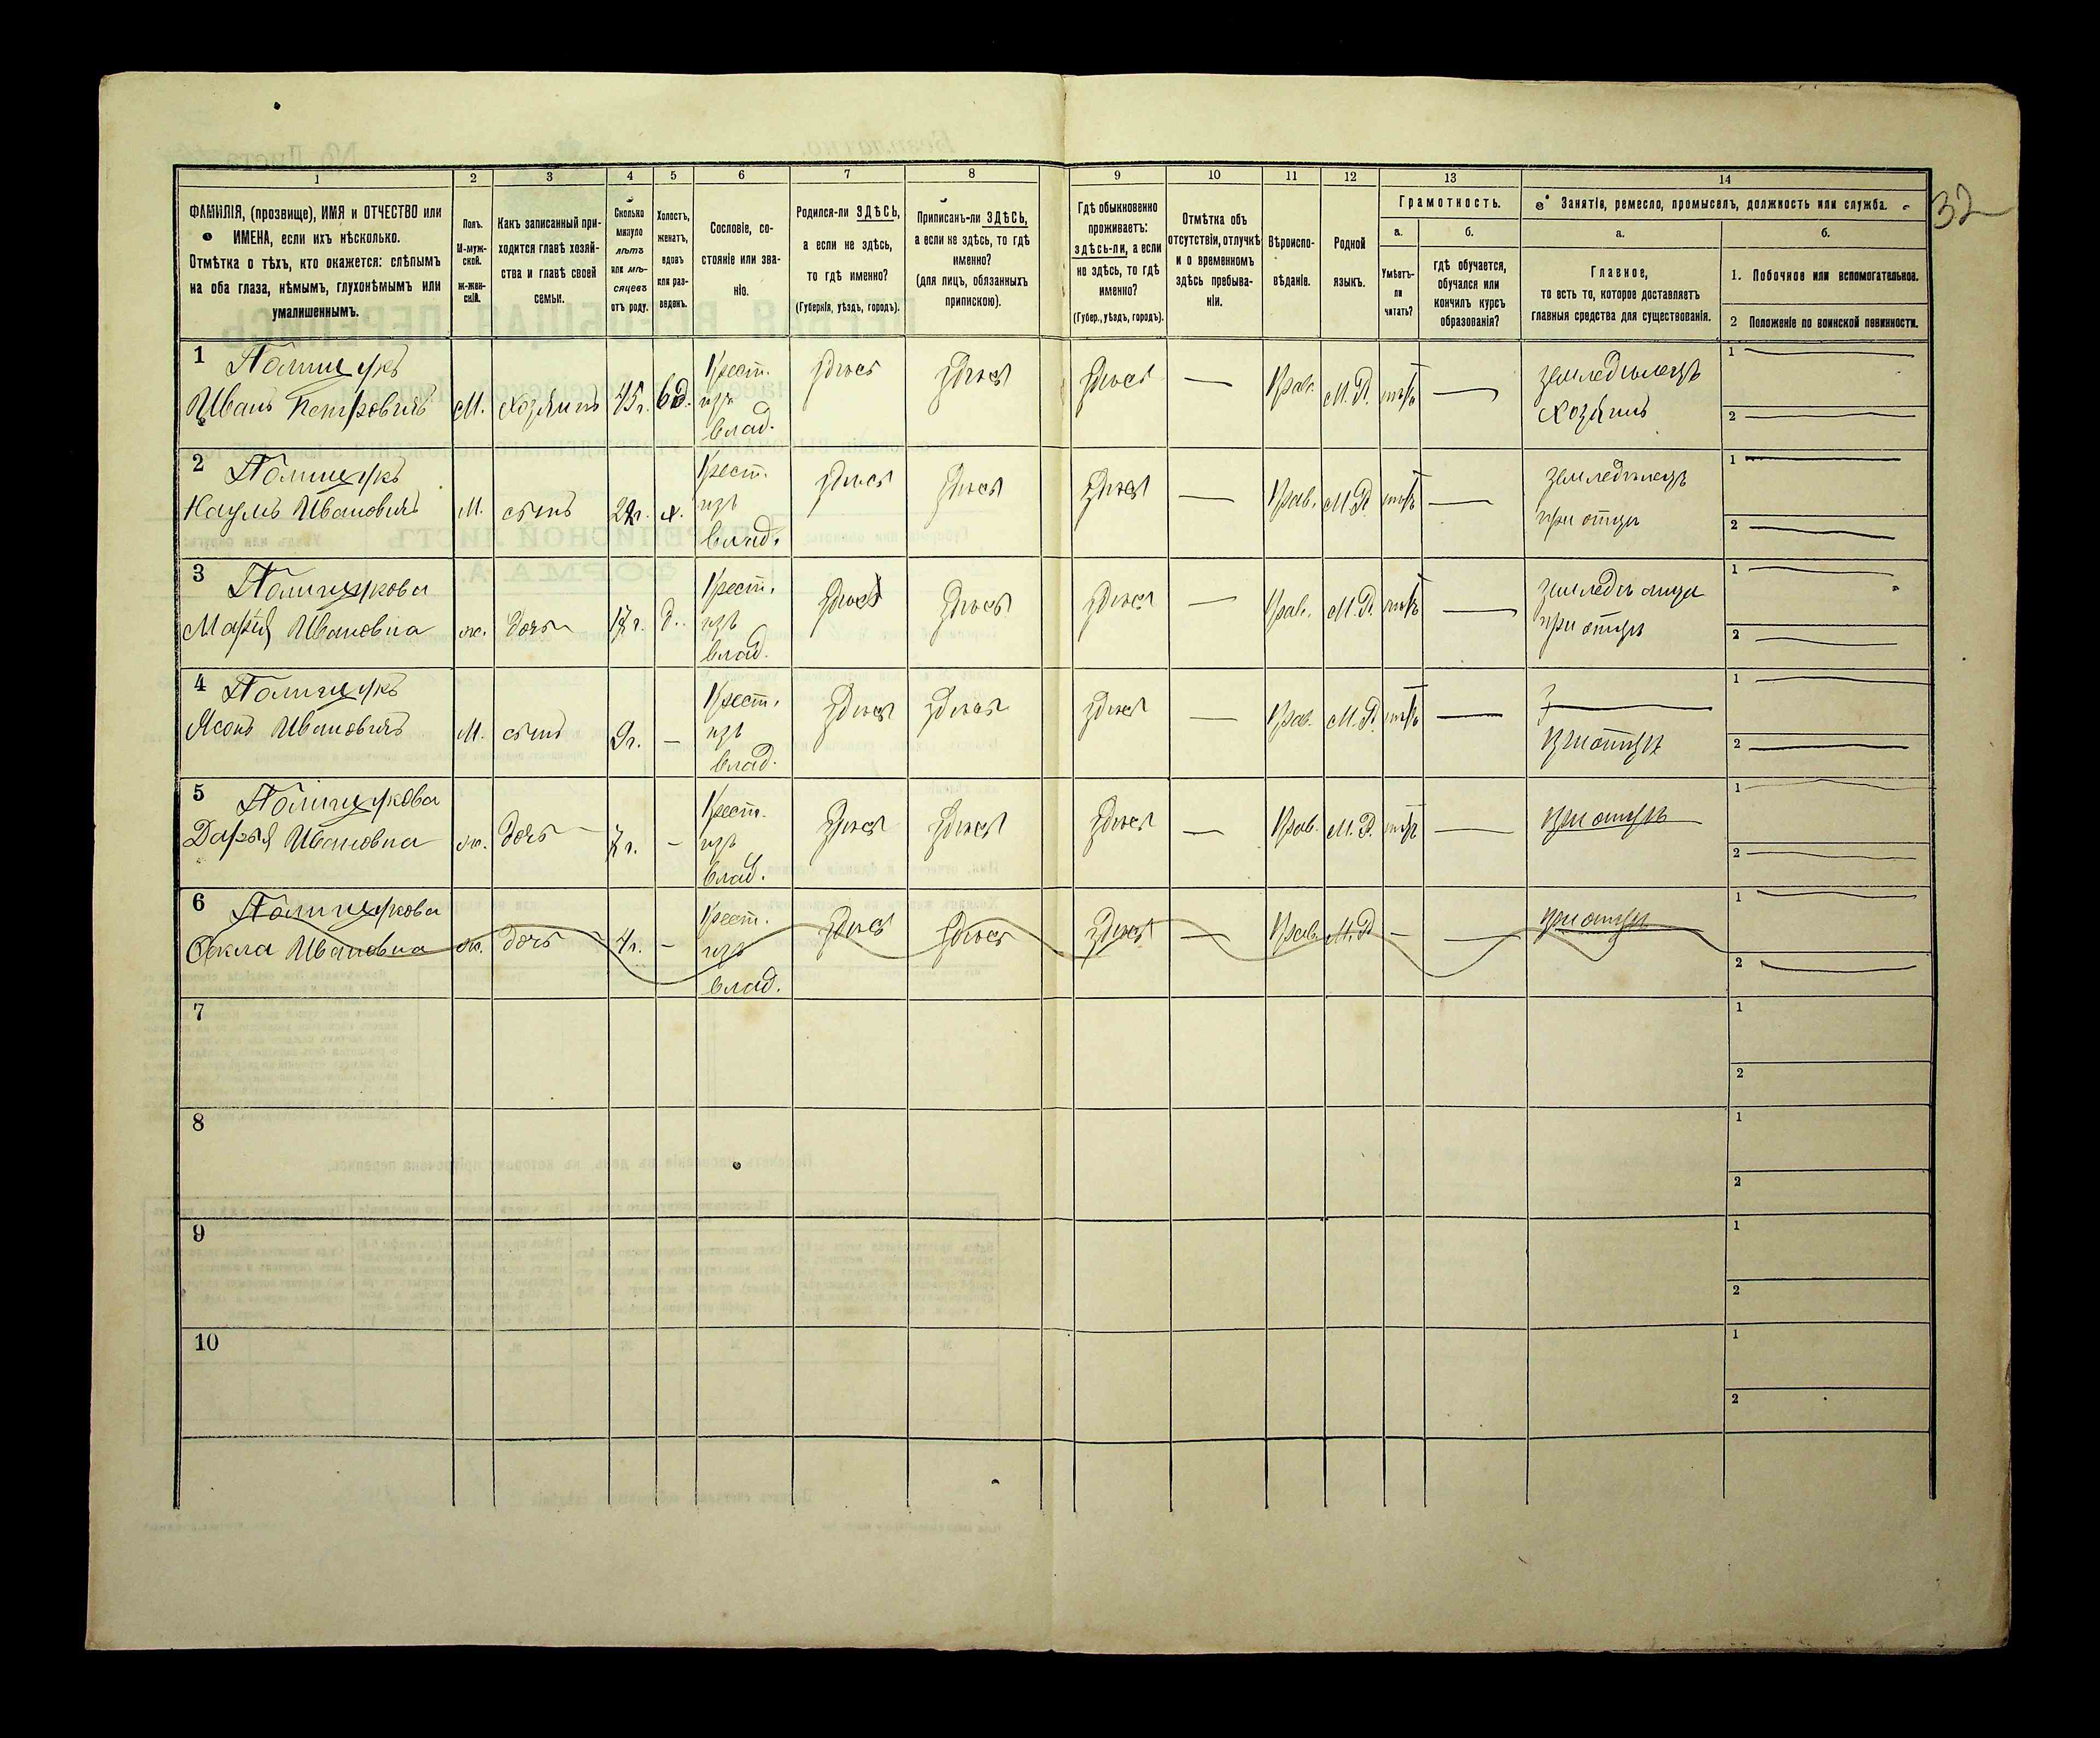 32
1
2
3
4
5
6
7
8
9
10
11
12
13
14
ФАМИЛІЯ, (прозвище), ИМЯ и ОТЧЕСТВО или
ИМЕНА, если ихъ нѣсколько.
Отмѣтка о тѣхъ, кто окажется: слѣпымъ
на оба глаза, нѣмымъ, глухонѣмымъ или
умалишеннымъ.
Полъ.
М-муж-
ской.
ж-жен-
скій.
Какъ записанный при-
ходится главѣ хозяй-
ства и главѣ своей
семьи.
Сколько
минуло
лѣтъ
или мѣ-
сяцевъ
отъ роду.
Холостъ,
женатъ,
вдовъ
или раз-
веденъ.
Сословіе, со-
стояніе или зва-
ніе.
Родился-ли ЗДѢСЬ,
а если не здѣсь,
то гдѣ именно?
(Губернія, уѣздъ, городъ).
Приписанъ-ли ЗДѢСЬ,
а если не здѣсь, то гдѣ
именно?
(для лицъ, обязанныхъ
припискою).
Гдѣ обыкновенно
проживаетъ:
здѣсь-ли, а если
не здѣсь, то гдѣ
именно?
(Губер., уѣздъ, городъ).
Отмѣтка объ
отсутствіи, отлучкѣ
и о временномъ
здѣсь пребыва-
ніи.
Вѣроиспо-
вѣданіе.
Родной
языкъ.
Грамотность.
а.
Умѣетъ-
ли
читать?
б.
гдѣ обучается,
обучался или
кончилъ курсъ
образованія?
Занятіе, ремесло, промыселъ, должность или служба.
а.
Главное,
то есть то, которое доставляетъ
главныя средства для существованія.
б.
1. Побочное или вспомогательное.
2 Положеніе по воинской повинности.
1 Полищукъ
Иванъ Петровичъ М. хозяинъ 45 г. вд. Крест. изъ влад. здѣсь здѣсь здѣсь — Прав. М. Р. нѣтъ — земледѣлецъ хозяинъ 1 2
2 Полищукъ
Наумъ Ивановичъ М. сынъ г. х. Крест. изъ влад. здѣсь здѣсь здѣсь — Прав. М. Р. нѣтъ — земледѣлецъ при отцѣ 1 2
3 Полищукова
Марія Ивановна ж. дочь г. д. Крест. изъ влад. здѣсь здѣсь здѣсь — Прав. М. Р. нѣтъ — при отцѣ 1 2
4 Полищукъ
Ясонъ Ивановичъ М. сынъ 9 г. — Крест. изъ влад. здѣсь здѣсь здѣсь — Прав. М. Р. нѣтъ — при отцѣ 1 2
5 Полищукова
Дарья Ивановна ж. дочь 7 г. — Крест. изъ влад. здѣсь здѣсь здѣсь — Прав. М. Р. нѣтъ — при отцѣ 1 2
6 Полищукова
Ѳекла Ивановна ж. дочь 4 г. — Крест. изъ влад. здѣсь здѣсь здѣсь — Прав. М. Р. — — при отцѣ 1 2
7 1 2
8 1 2
9 1 2
10 1 2